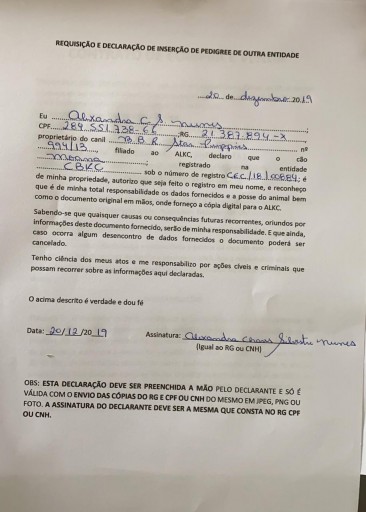 REQUISIÇÃO E DECLARAÇÃO DE INSERÇÃO DE PEDIGREE DE OUTRA ENTIDADE
20 de dezembro 2019
Eu Alexandra C. S. nunes,
CPF 289 551.738-66 ;RG 21.387.894-X,
proprietário do canil B.B.R. Star Pimpprins nº
994/13, filiado ao ALKC, declaro que o cão
Morana, registrado na entidade
CBKC sob o número de registro CEC/18/00884; é
de minha propriedade, autorizo que seja feito o registro em meu nome, e reconheço
que é de minha total responsabilidade os dados fornecidos e a posse do animal bem
como o documento original em mãos, onde forneço a cópia digital para o ALKC.
Sabendo-se que quaisquer causas ou consequências futuras recorrentes, oriundos por
informações deste documento fornecido, serão de minha responsabilidade. E que ainda,
caso ocorra algum desencontro de dados fornecidos o documento poderá ser
cancelado.
Tenho ciência dos meus atos e me responsabilizo por ações cíveis e criminais que
possam recorrer sobre as informações aqui declaradas.
O acima descrito é verdade e dou fé
Data: 20/12/2019 Assinatura: Alexandra Silvestre Nunes
(Igual ao RG ou CNH)
OBS: ESTA DECLARAÇÃO DEVE SER PREENCHIDA A MÃO PELO DECLARANTE E SÓ É
VÁLIDA COM O ENVIO DAS CÓPIAS DO RG E CPF OU CNH DO MESMO EM JPEG, PNG OU
FOTO. A ASSINATURA DO DECLARANTE DEVE SER A MESMA QUE CONSTA NO RG CPF
OU CNH.